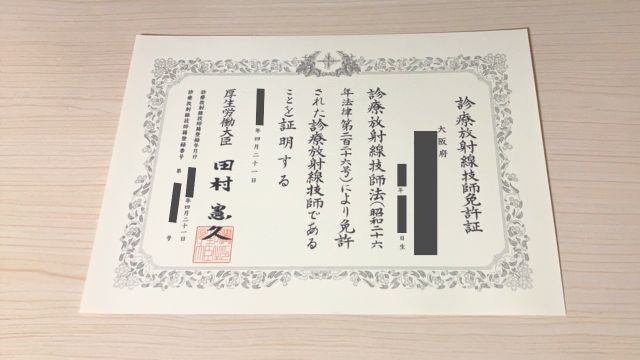 診療放射線技師免許証
大阪府
年
日生
診療放射線技師法(昭和二十六
年法律第二百二十六号)により免許
された診療放射線技師である
ことを証明する
年四月二十一日
厚生労働大臣 田村憲久
診療放射線技師籍登録年月日 年四月二十一日
診療放射線技師籍登録番号 第 号